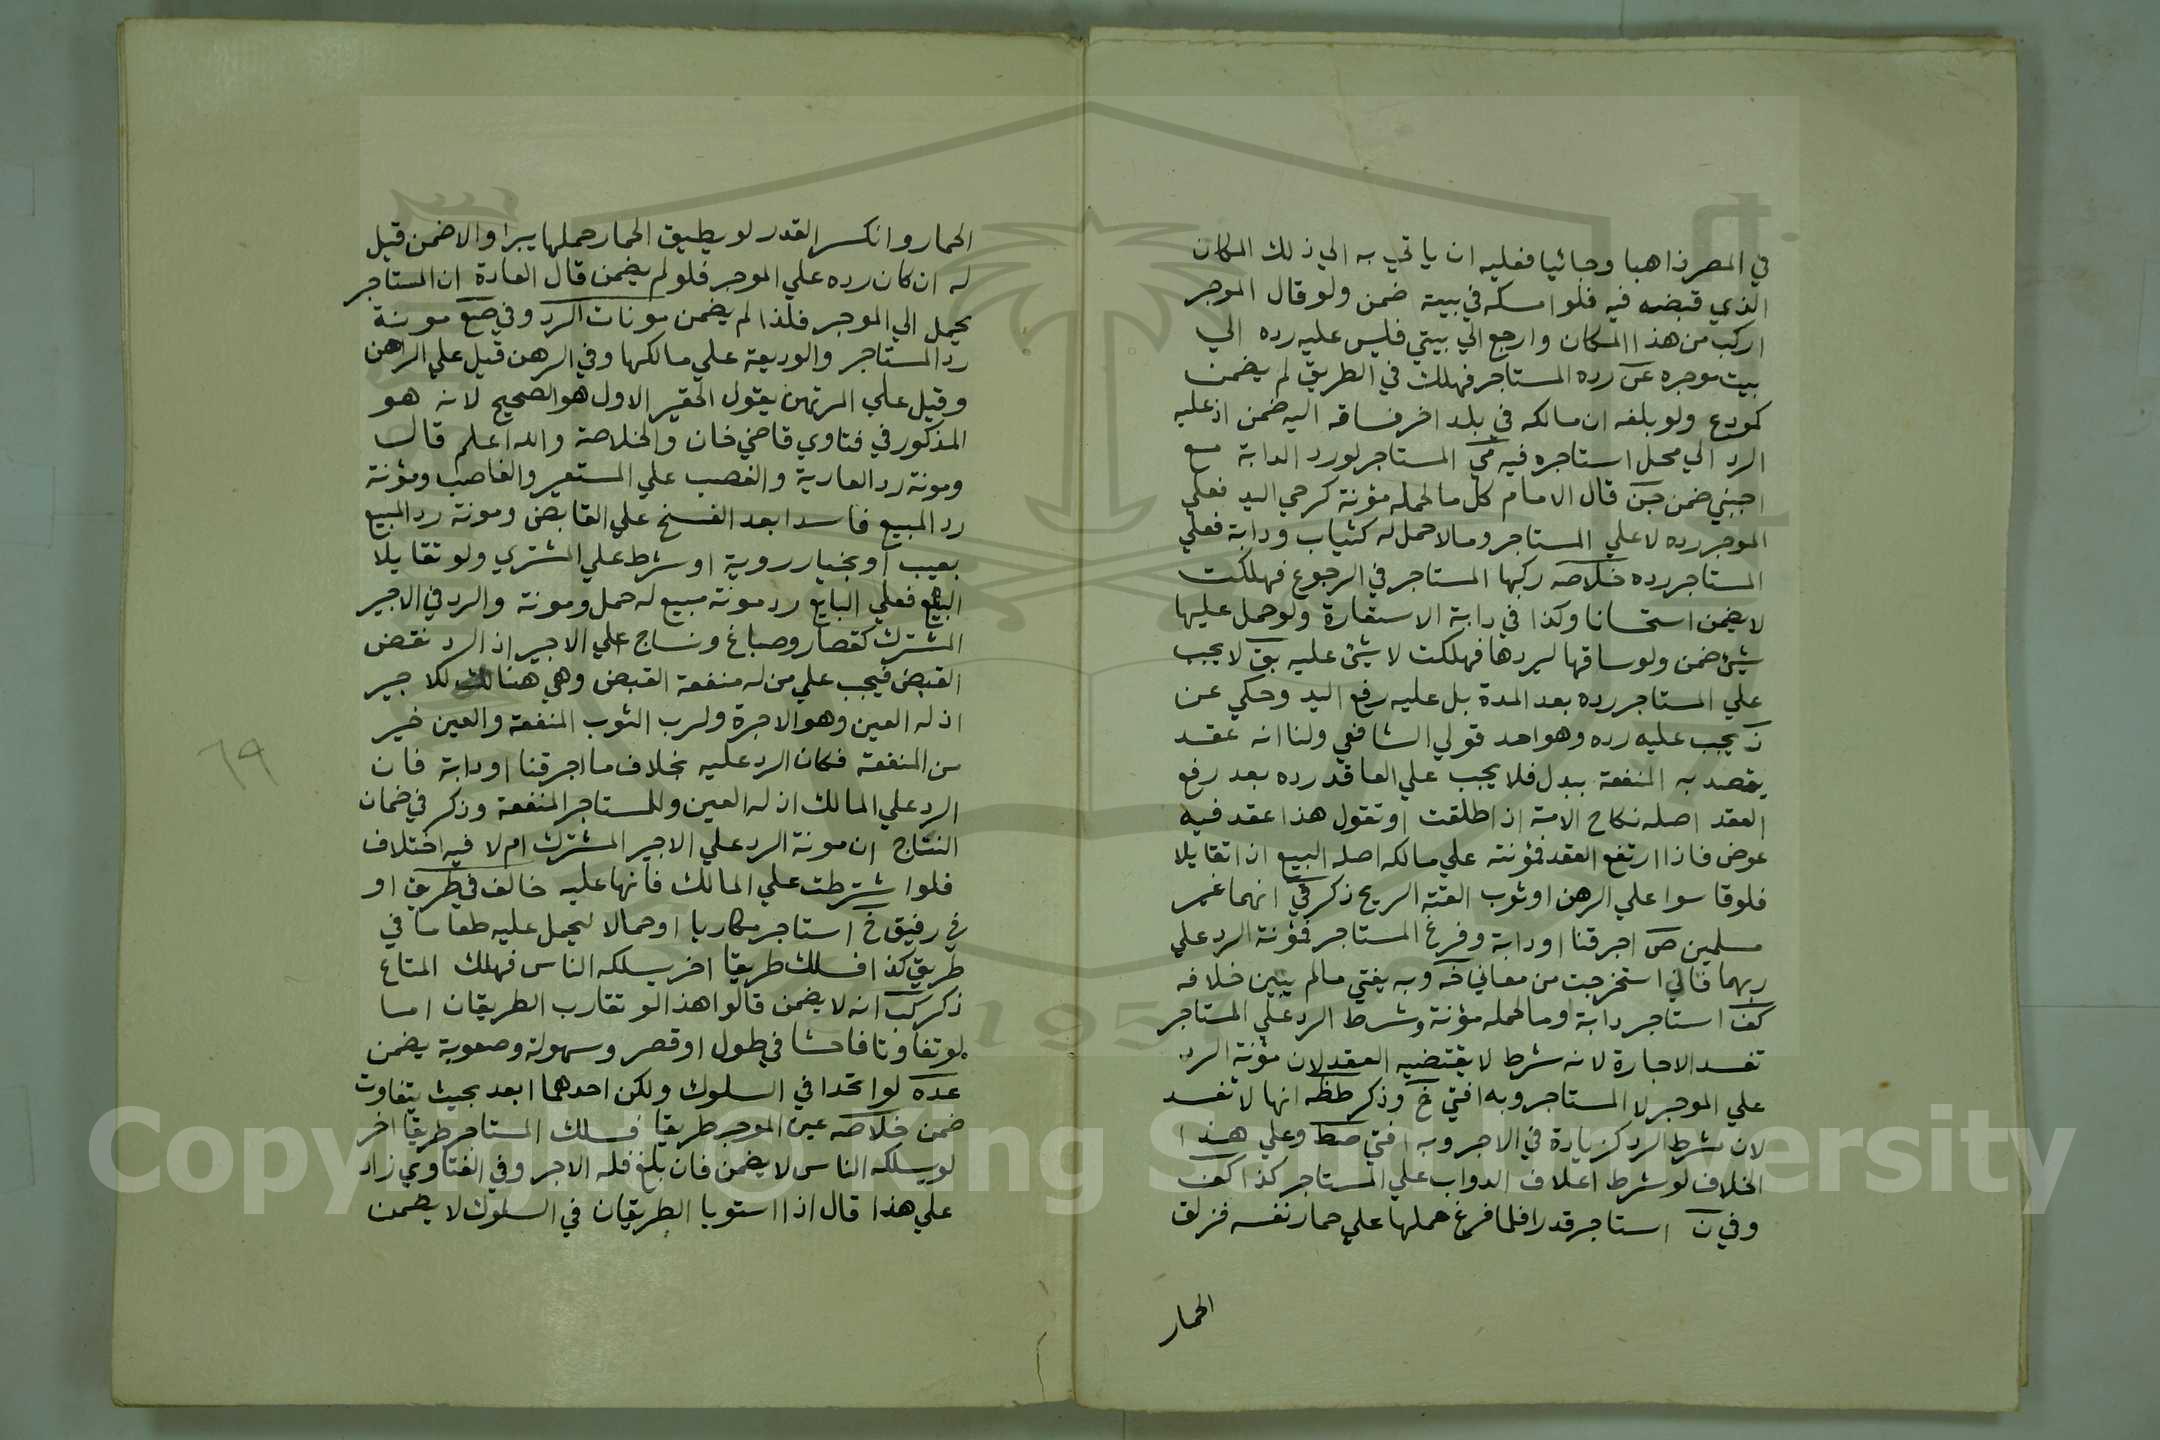 في المصر ذاهبا وجائيا فعليه ان ياتي به الي ذلك المكان
الذي قبضه فيه فلوامسكه في بيته ضمن ولو قال الموجر
اركب من هذا المكان وارجع الي بيتي فليس عليه رده الي
بيت موجره عن رده المستاجر فهلك في الطريق لم يضمن
كمودع ولو بلغه ان مالكه في بلد اخر فساقه اليه ضمن اذ عليه
الرد الي محل استاجره فيه مي المستاجر لورد الدابة مع
اجنبي ضمن جن قال الامام كل مالحمله مؤنة كرحي اليد فعلي
الموجر رده لا علي المستاجر ومالا حمل له كثياب ودابة فعلي
المستاجر رده خلاصه ركبها المستاجر في الرجوع فهلكت
لا يضمن استحسانا وكذا في دابة الاستعارة ولو حمل عليها
شئ ضمن ولو ساقها ليردها فهلكت لا شئ عليه بق لا يجب
علي المستاجر رده بعد المدة بل عليه رفع اليد وحكي عن
ن يجب عليه رده وهو احد قولي الشافعي ولنا انه عقد
يقصد به المنفعة ببدل فلا يجب علي العاقد رده بعد رفع
العقد اصله نكاح الامة اذا طلقت او تقول هذا عقد فيه
عوض فاذا ارتفع العقد فمؤنته علي مالكه اصله البيع اذا تقايلا
فلو قاسوا علي الرهن او ثوب القته الريح ذكر في انهما غير
مسلمين ص اجر قنا او دابة وفرغ المستاجر فمؤنة الرد علي
ربهما فاني استخرجت من معاني خه وبه يفتي مالم يبين خلافه
كف استاجر دابة او مالحمله مؤنة وشرط الرد علي المستاجر
تفسد الاجارة لانه شرط لا يقتضيه العقد لان مؤنة الرد
علي الموجر لا المستاجر وبه افتي خ وذكر ظظه انها لا تفسد
لان شرط الرد كزيادة في الاجر وبه افتي صط وعلي هذا
الخلاف لو شرط اعلاف الدواب علي المستاجر كذا كف
وفي ن استاجر قدرا فلما فرغ حملها علي حمار نفسه فزلق
الحمار
الحمار وانكسر القدر لو يطيق الحمار حملها يبرا والا ضمن قيل
له ان كان رده علي الموجر فلو لم يضمن قال العادة ان المستاجر
يحمل الي الموجر فلذا لم يضمن مونات الرد وفي صع مونة
رد المستاجر والوديعة علي مالكها وفي الرهن قيل علي الراهن
وقيل علي المرتهن يقول الحقير الاول هو الصحيح لانه هو
المذكور في فتاوي قاضي خان والخلاصة والله اعلم قال
ومونة رد العارية والغصب علي المستعير والغاصب ومؤنة
رد المبيع فاسدا بعد الفسخ علي القابض ومونة رد المبيع
بعيب او بخيار روية او شرط علي المشتري ولو تقايلا
البيع فعلي البايع رد مونة مبيع له حمل ومونة والرد في الاجير
المشترك كقصار وصباغ ونساج علي الاجير اذ الرد نقض
القبض فيجب علي من له منفعة القبض وهي هنالك للاجير
اذ له العين وهو الاجرة ولرب الثوب المنفعة والعين خير
من المنفعة فكان الرد عليه بخلاف ما اجر قنا او دابة فان
الرد علي المالك اذ له العين وللمستاجر المنفعة وذكر في ضمان
النتاج ان مونة الرد علي الاجير المشترك ام لا فيه اختلاف
فلو اشترطت علي المالك فانها عليه خالف في طريق او
في رفيق خ استاجر مكاريا او حمالا ليحمل عليه طعاما في
طريق كذا فسلك طريقا اخر يسلكه الناس فهلك المتاع
ذكر كب انه لا يضمن قالوا هذا لو تقارب الطريقان اما
لو تفاوتا فاحشا في طول او قصر وسهولة وصعوبة يضمن
عده لو اتحدا في السلوك ولكن احدهما ابعد بحيث يتفاوت
ضمن خلاصه عين الموجر طريقا فسلك المستاجر طريقا اخر
لو يسلكه الناس لا يضمن فان بلغ فله الاجر وفي الفتاوي زاد
علي هذا قال اذا استويا الطريقان في السلوك لا يضمن
٦٩
1957
Copyright © King Saud University